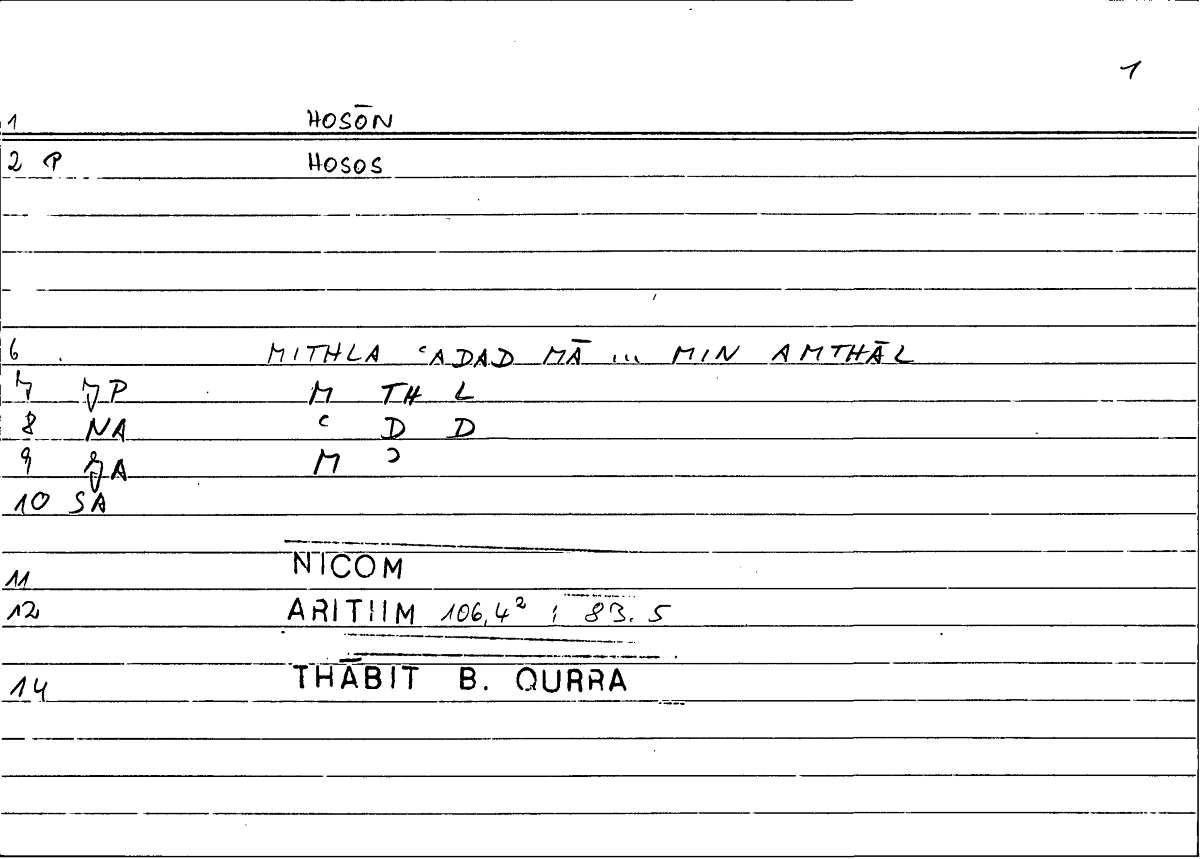 1
1 HOSŌN
2 P HOSOS
6 MITHLA ʿADAD MĀ ... MIN AMTHĀL
7 JP M TH L
8 NA ʿ D D
9 JA M ʾ
10 SA
11 NICOM
12 ARITHM 106,4² ; 83.5
14 THĀBIT B. QURRA